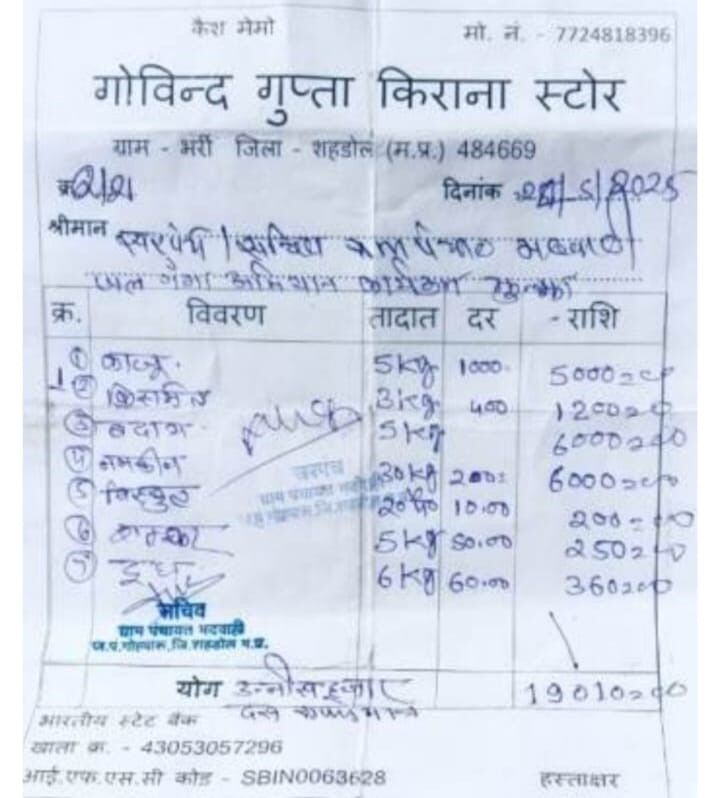 कैश मेमो मो. नं. - 7724818396
गोविन्द गुप्ता किराना स्टोर
ग्राम - भर्री जिला - शहडोल (म.प्र.) 484669
क्र दिनांक 5/2025
श्रीमान सरपंच / सचिव ग्राम पंचायत भदवाही
जल गंगा अभियान कार्यक्रम
क्र. विवरण तादात दर राशि
① काजू 5kg 1000 5000=00
② किसमिस 3kg 400 1200=00
③ बदाम 5kg 6000=00
④ नमकीन 30kg 200= 6000=00
⑤ बिस्कुट 20 10.00 200=00
⑥ 5kg 50.00 250=00
⑦ दूध 6kg 60.00 360=00
सरपंच
ग्राम पंचायत भदवाही
सचिव
ग्राम पंचायत भदवाही
ज.पं.गोहपारू,जि.शहडोल म.प्र.
योग उन्नीस हजार 19010=00
दस रूपये मात्र
भारतीय स्टेट बैंक
खाता क. - 43053057296
आई.एफ.एस.सी कोड - SBIN0063628 हस्ताक्षर